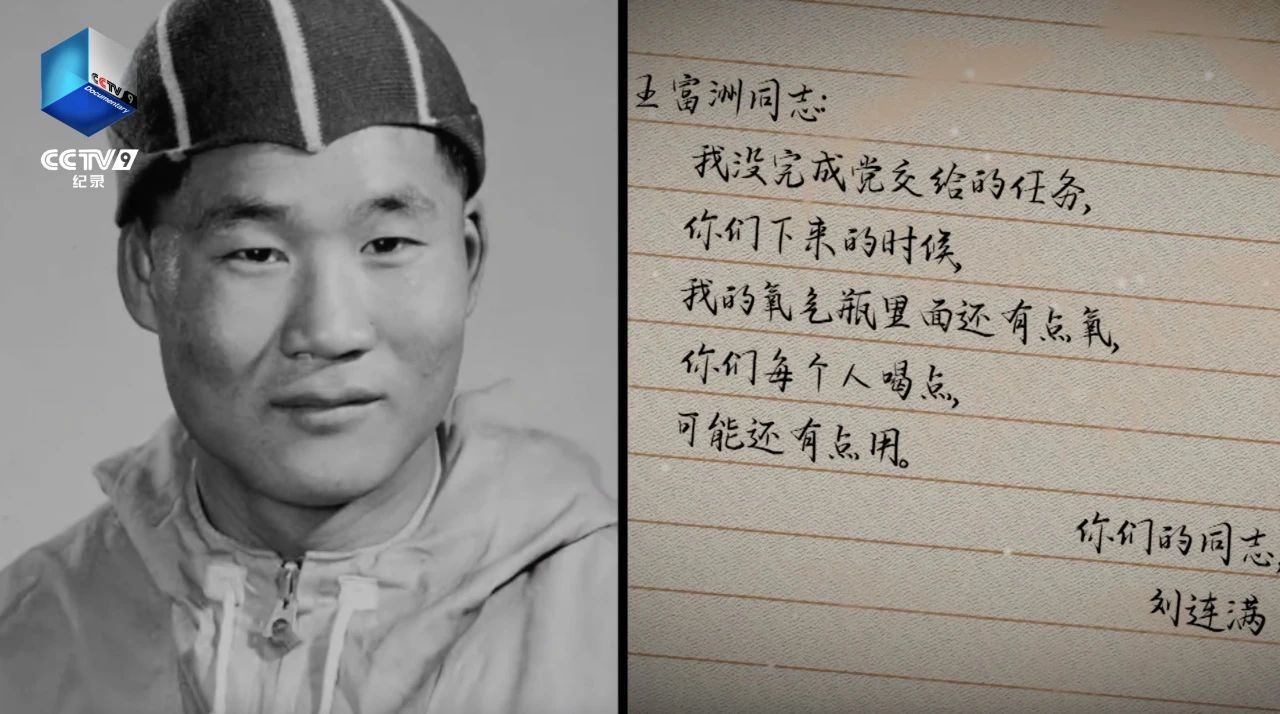 CCTV 9
Documentary
CCTV 9
纪录
王富洲同志:
我没完成党交给的任务,
你们下来的时候,
我的氧气瓶里面还有点氧,
你们每个人喝点,
可能还有点用。
你们的同志,
刘连满